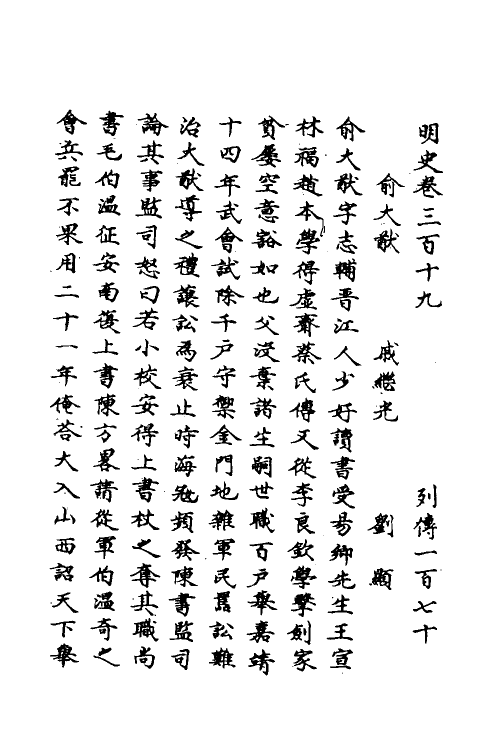 明史卷三百十九　列傳一百七十
俞大猷　戚繼光　劉顯
俞大猷字志輔晉江人少好讀書受易鄉先生王宣
林福趙本學得虛齋蔡氏傳又從李良欽學擊劍家
貧屢空意豁如也父沒棄諸生嗣世職百戶舉嘉靖
十四年武會試除千戶守禦金門地雜軍民嚚訟難
治大猷導之禮讓訟為衰止時海寇頻發陳書監司
論其事監司怒曰若小校安得上書杖之奪其職尚
書毛伯溫征安南復上書陳方畧請從軍伯溫奇之
會兵罷不果用二十一年俺荅大入山西詔天下舉